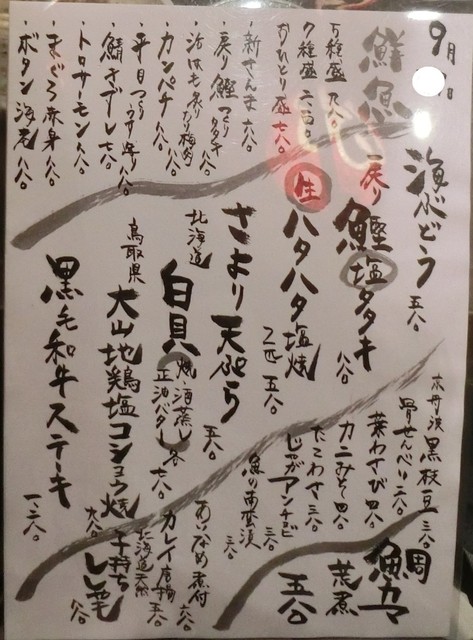 9月
海ぶどう 五八〇
鮮魚
戻り鰹塩タタキ 八八〇
生ハタハタ塩焼 2匹 五八〇
さより天ぷら 五八〇
北海道
白貝(焼・酒蒸し・正油バター)各 七八〇
鳥取県
大山地鶏塩コショウ焼 六八〇
黒毛和牛ステーキ 一、二八〇
7種盛 二一四〇
おひとり盛 七八〇
新さんま 六八〇
戻り鰹 つくり タタキ 八八〇
・カンパチ 八八〇
・平目つくり うす造り 八八〇
・鯖きずし 七八〇
・トロサーモン 八八〇
・まぐろ赤身 八八〇
・ボタン海老 八八〇
丹波黒枝豆 三八〇
骨せんべい 二八〇
葉わさび 四八〇
カニみそ 四八〇
たこわさ 三八〇
じゃがアンチョビ 三八〇
魚の南蛮漬 三八〇
鯛
魚カマ
荒煮
五八〇
あいなめ煮付 六八〇
カレイ唐揚 五八〇
北海道天然
子持ちしし尾 八八〇